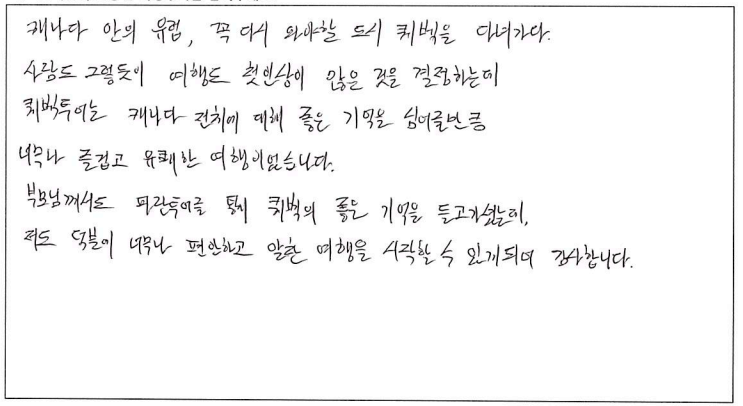 캐나다 안의 유럽, 꼭 다시 와야할 도시 퀘벡을 다녀가다.
사람도 그렇듯이 여행도 첫인상이 많은 것을 결정하는데
퀘벡투어는 캐나다 전체에 대해 좋은 기억을 심어줄만큼
너무나 즐겁고 유쾌한 여행이었습니다.
부모님께서도 파란투어를 통해 퀘벡의 좋은 기억을 들고가셨는데,
저도 덕분에 너무나 편안하고 알찬 여행을 시작할 수 있게되어 감사합니다.